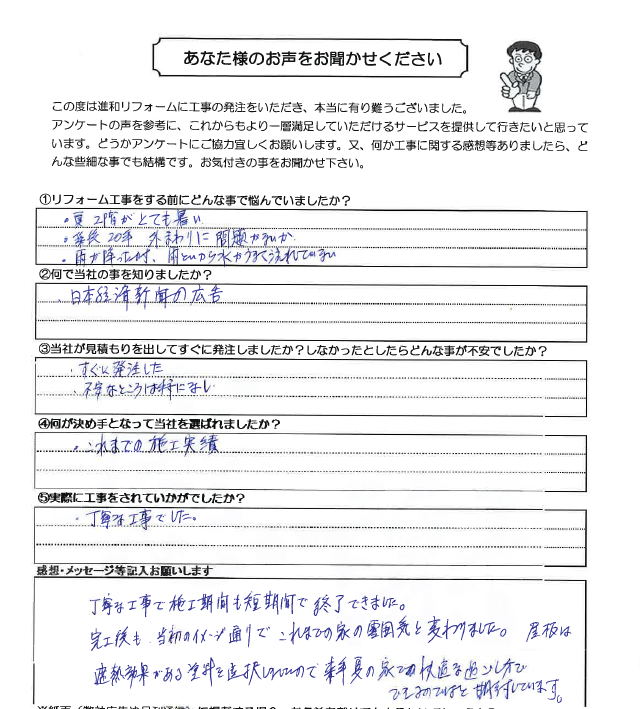 あなた様のお声をお聞かせください
この度は進和リフォームに工事の発注をいただき、本当に有り難うございました。
アンケートの声を参考に、これからもより一層満足していただけるサービスを提供して行きたいと思って
います。どうかアンケートにご協力宜しくお願いします。又、何か工事に関する感想等ありましたら、ど
んな些細な事でも結構です。お気付きの事をお聞かせ下さい。
①リフォーム工事をする前にどんな事で悩んでいましたか？
・夏 2階がとても暑い
・築後 20年 外まわりに問題がないか
・雨が降った時、雨どいから水がうまく流れていない
②何で当社の事を知りましたか？
・日本経済新聞の広告
③当社が見積もりを出してすぐに発注しましたか？しなかったとしたらどんな事が不安でしたか？
・すぐに発注した
・不安なところは特になし
④何が決め手となって当社を選ばれましたか？
・これまでの施工実績
⑤実際に工事をされていかがでしたか？
・丁寧な工事でした。
感想・メッセージ等記入お願いします
丁寧な工事で施工期間も短期間で終了できました。
完工後も、当初のイメージ通りでこれまでの家の雰囲気と変わりました。 屋根は
遮熱効果がある塗料を選択しているので来年夏の家での快適な過ごし方が
できるのではと期待しています。